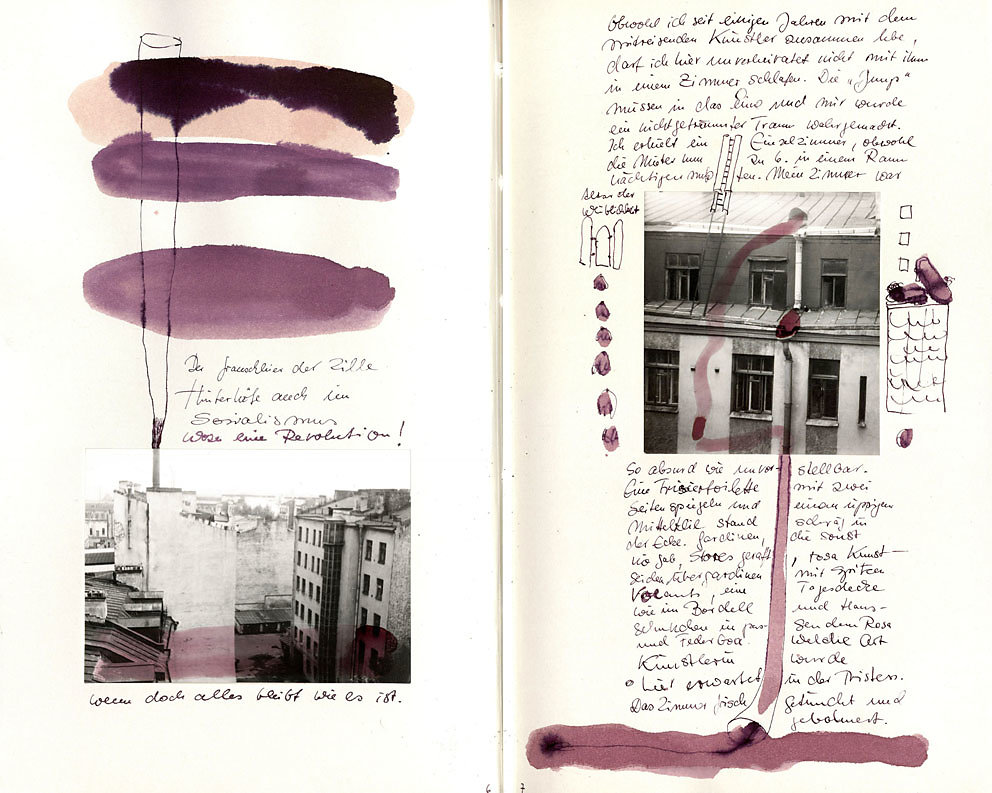 Der Grauschleier der Zille
Hinterhöfe auch im
Sozialismus
wozu eine Revolution!
wenn doch alles bleibt wie es ist.
6
Obwohl ich seit einigen Jahren mit dem
mitreisenden Künstler zusammen lebe,
darf ich hier unverheiratet nicht mit ihm
in einem Zimmer schlafen. Die „Jungs"
müssen in das Eine und mir wurde
ein nichtgeträumter Traum wahrgemacht.
Ich erhielt ein Einzelzimmer, obwohl
die Mieter nun zu 6. in einem Raum
nächtigen mußten. Mein Zimmer war
Altar der
Weiblichkeit
So absurd wie unvorstellbar.
Eine Frisiertoilette mit zwei
Seitenspiegeln und einem üppigen
Mittelteil stand schräg in
der Ecke. Gardinen, die sonst
wo gab, Stores gerafft, rosa Kunst-
seiden Übergardinen mit Spitzen
Volants, eine Tagesdecke
wie im Bordell und Haus-
schuhchen in dem Rosa
und Federboa. Welche Art
Künstlerin wurde
hier erwartet in der Tristess.
Das Zimmer frisch getüncht und
gebohnert.
7